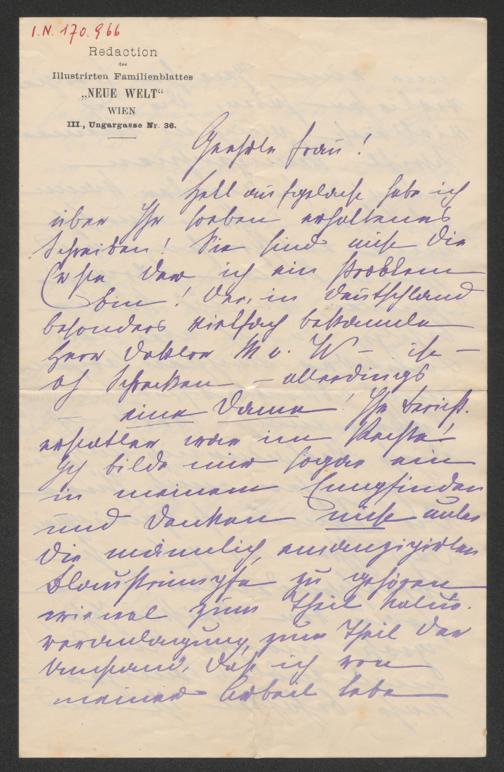 I.N. 170.966
Redaction
des
Illustrirten Familienblattes
„NEUE WELT“
WIEN
III., Ungargasse Nr. 36.
Geehrte Frau!
Hell aufgelacht habe ich
über Ihr soeben erhaltenes
Schreiben! Sie sind nicht die
Erste der ich ein Problem
bin! Der, in Deutschland
besonders vielfach bekannte
Herr Doktor M v. W – ist –
oh Schrecken – allerdings
– eine Dame! Ihr Bericht-
erstatter war im Recht!
Ich bilde mir sogar ein
in meinem Empfinden
und Denken nicht unter
die männlich
Blaustrümpfe zu gehören
wie wol zum Theil natur.
veranlagung, zum Theil der
Umstand, daß ich von
meiner Arbeit lebe